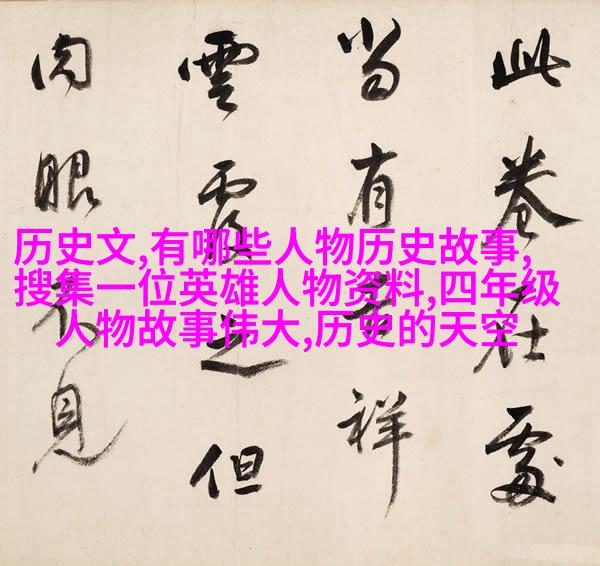 此卷在處
當有吉祥
雲覆之但
肉眼不見
历史文,有哪些人物历史故事,
搜集一位英雄人物资料,四年级
人物故事伟大,历史的天空